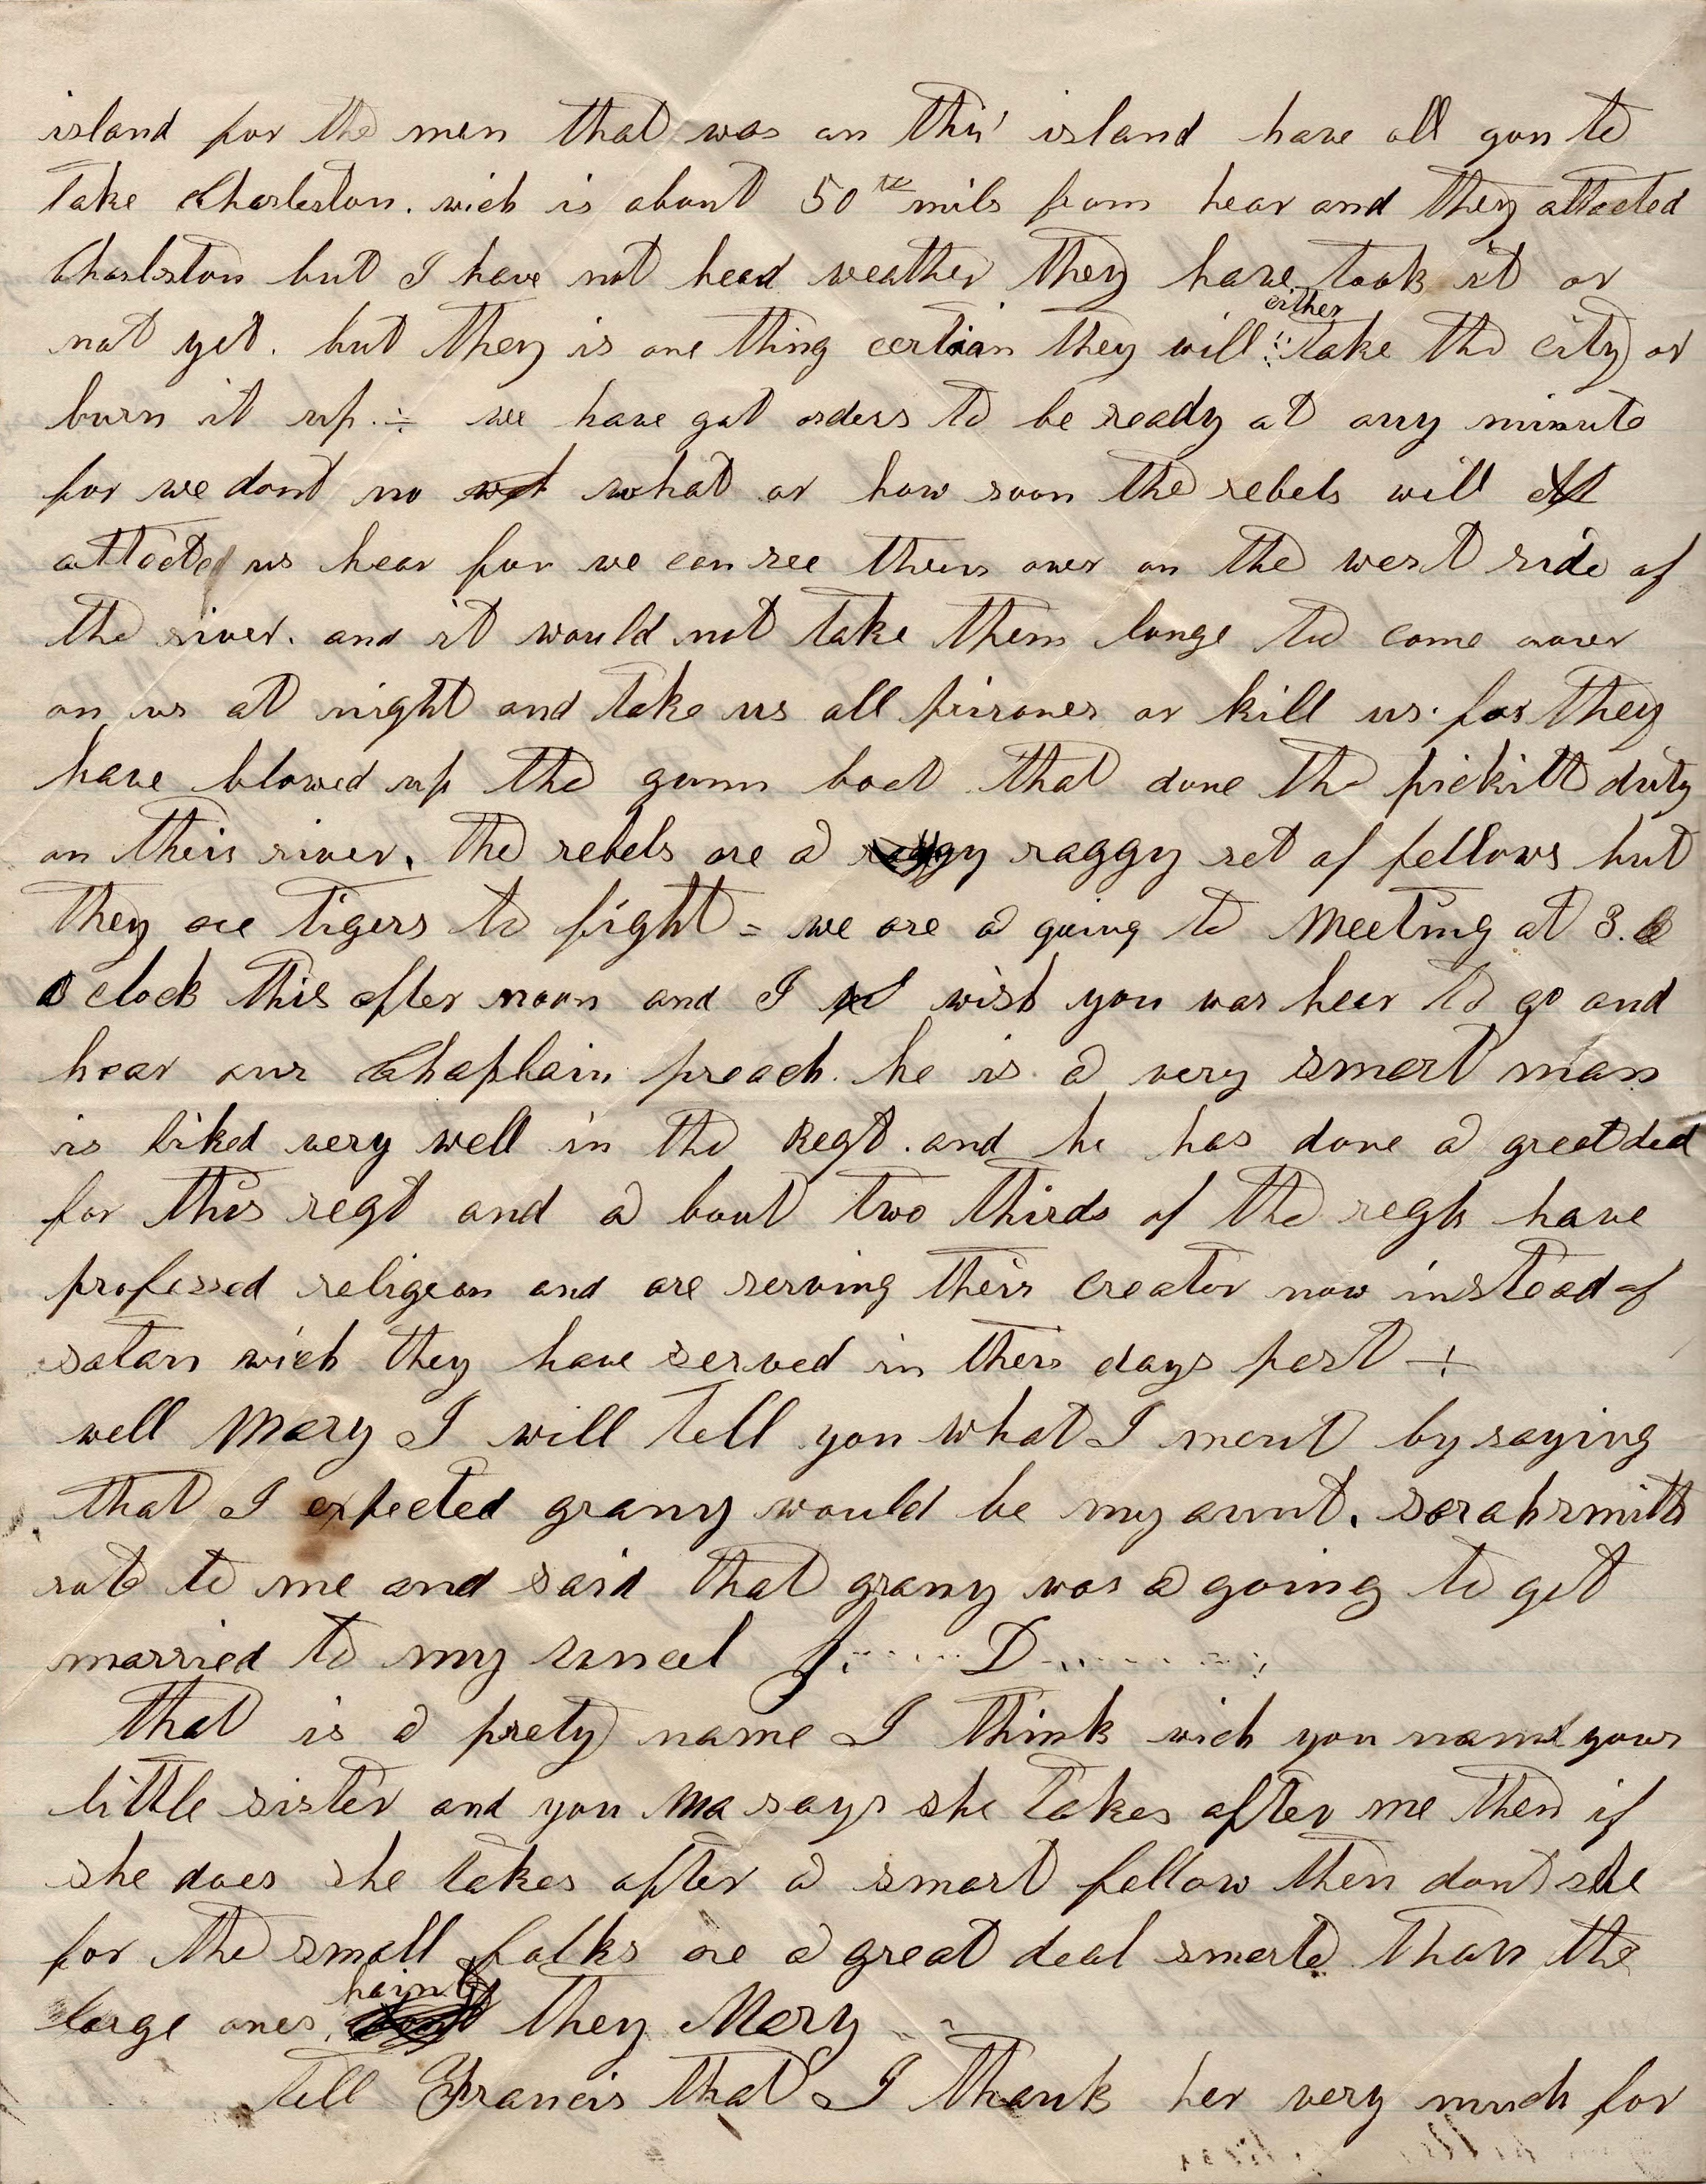 island for the men that was on this island have all gon to
take Charleston. wich is about 50th mils from hear and they attacted
Charlston but I have not head weather they have took it or
not yet. but they is one thing certian they will either take the city or
burn it up. we have got orders to be ready at any minute
for we dont no what or how soon the rebels will
attacted us hear for we can see them over on the west side of
the river. and it would not take them longe to come over
on us at night and take us all prisones or kill us. for they
have blowed up the gunn boat that done the pickitt duty
on this river. the rebels are a raggy set of fellows but
they are tigers to fight = we are a going to meeting at 3.
o clock this after noon and I wish you was hear to go and
hear our Chaplain preach. he is a very smart man
is liked very well in the Regt. and he has done a great deal
for this regt and a bout two thirds of the regt have
professed religeon and are serving their creator now instead of
satan wich they have served in there days past ÷
well Mary I will tell you what I ment by saying
that I expected grany would be my aunt. sarah smith
rote to me and said that grany was a going to get
married to my uncel J...... D...........
that is a prety name I think wich you named your
little sister and you Ma says she takes after me then if
she does she takes after a smart fellow then dont she
for the small folks are a great deal smarte than the
large ones. haint they Mary
tell Francis that I thank her very much for